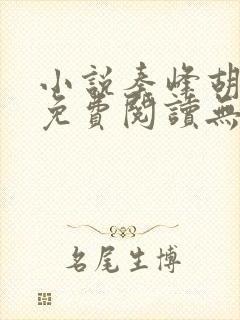 小說秦峰胡
免費閱讀無
名尾生博